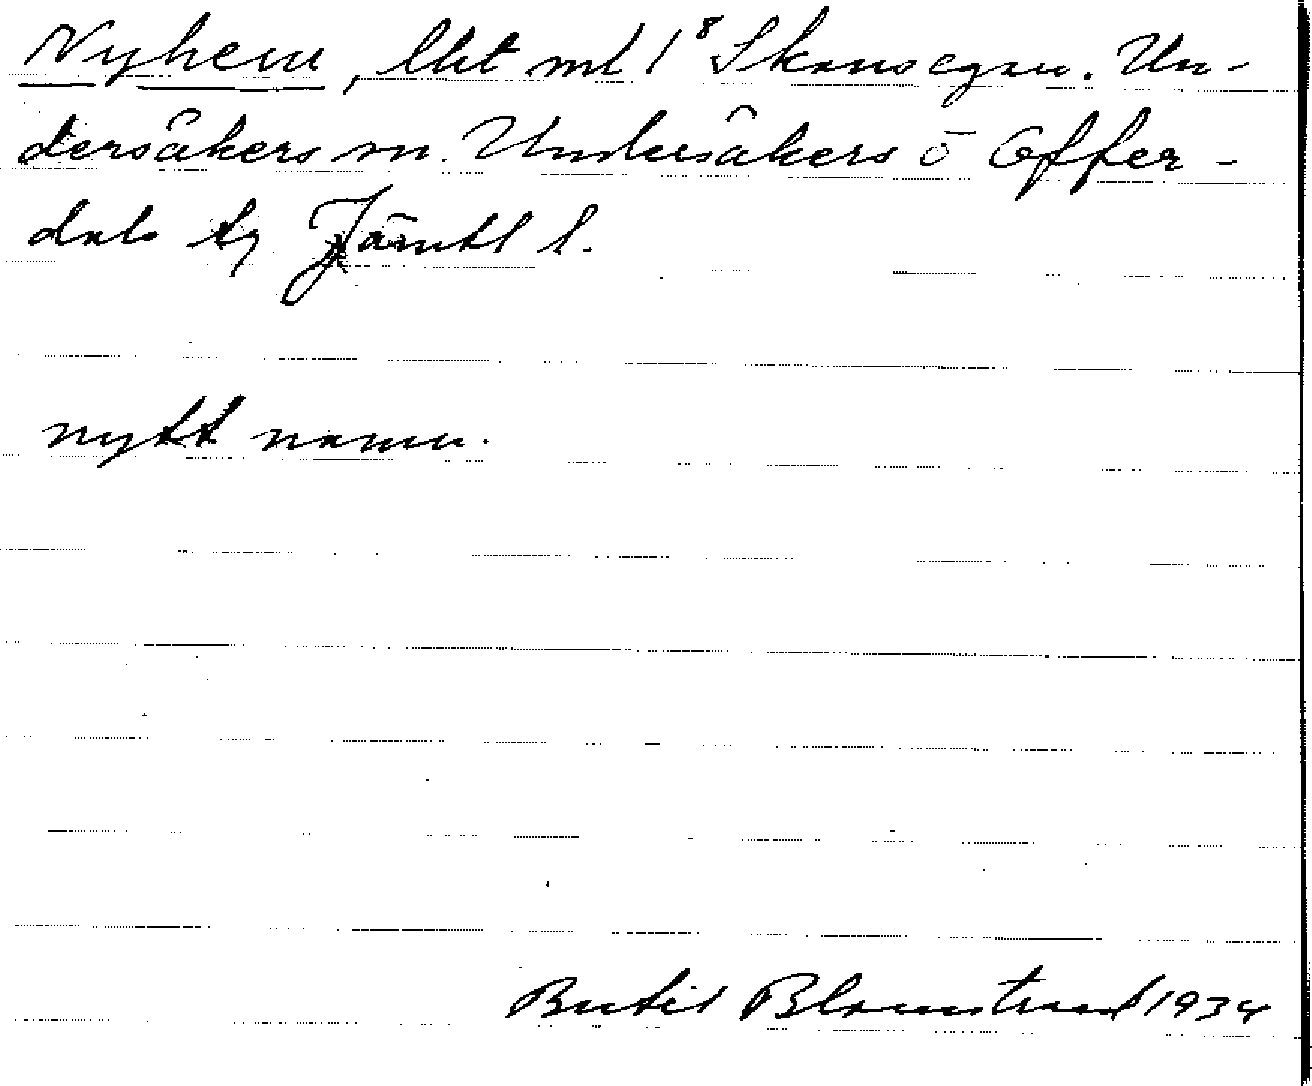 Nyhem, lht ml 1⁸ Skansegan. Un-
dersåkers sn. Undersåkers o Offer-
dals tg Jämtl l.
nytt namn.
Bertil Blomstrand 1934